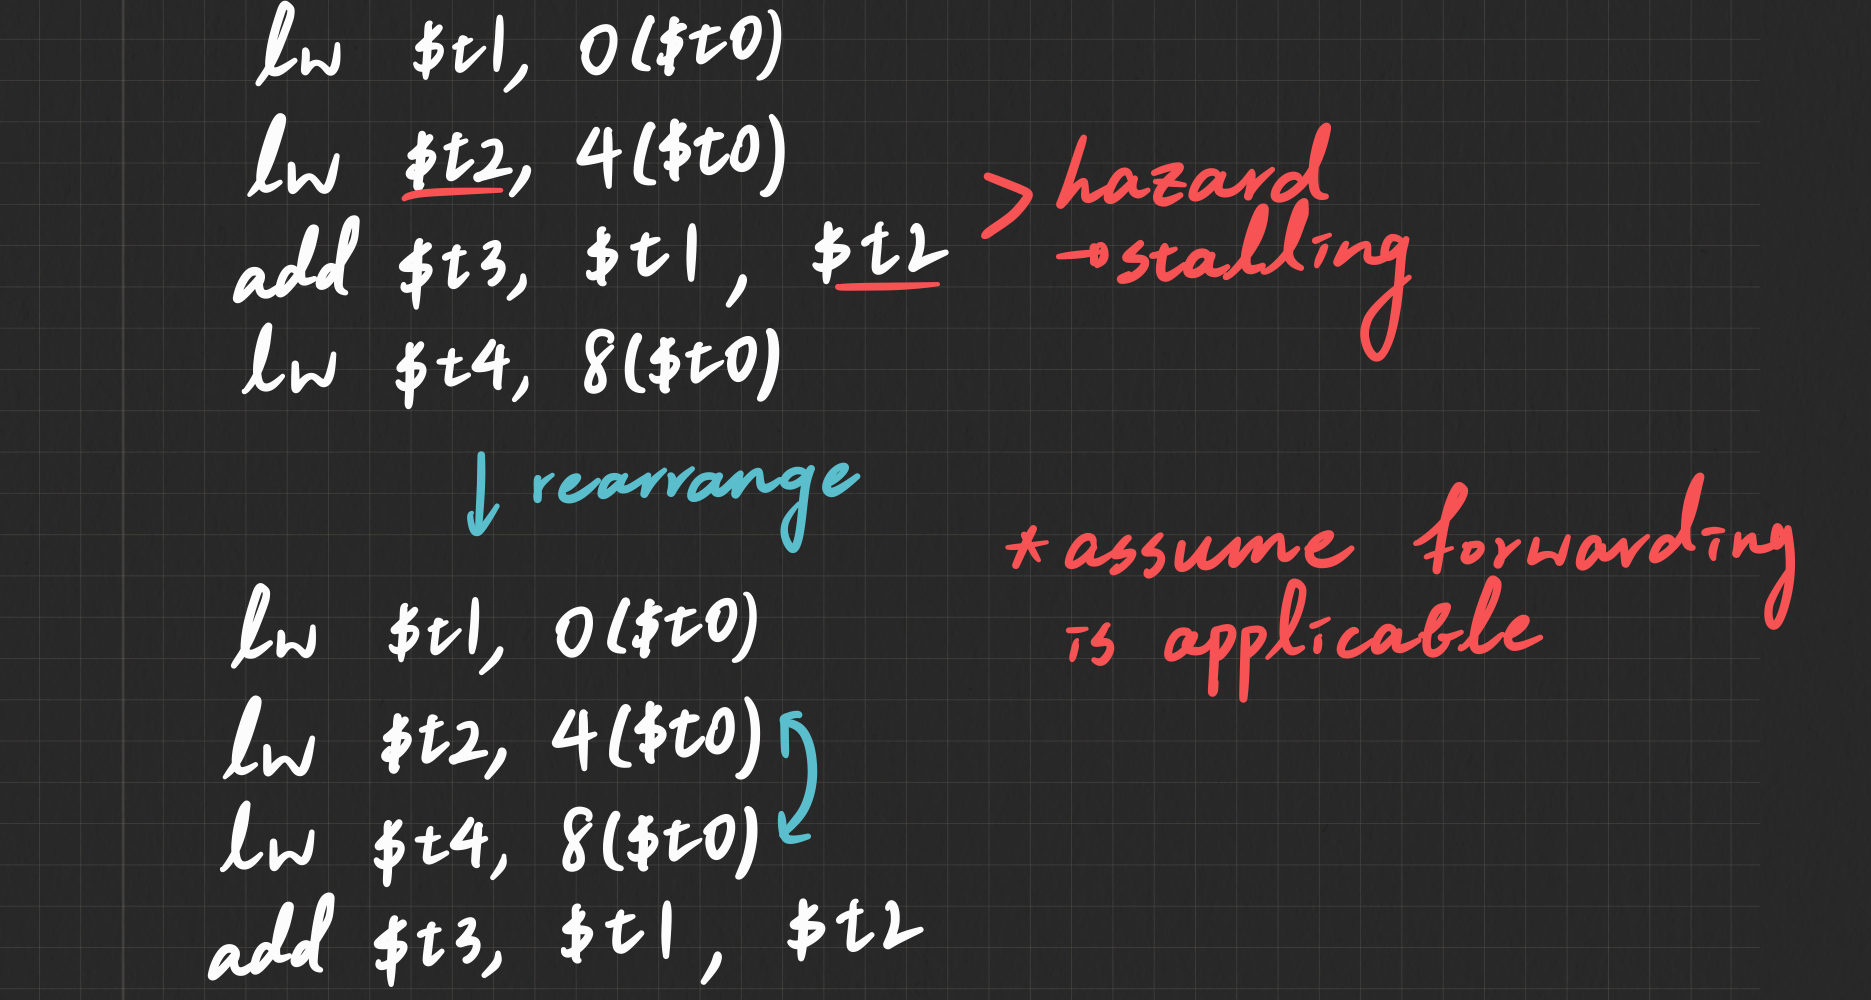 lw $t1, 0($t0)
lw $t2, 4($t0)
add $t3, $t1, $t2
lw $t4, 8($t0)
> hazard
→stalling
↓ rearrange
* assume forwarding
is applicable
lw $t1, 0($t0)
lw $t2, 4($t0)
lw $t4, 8($t0)
add $t3, $t1, $t2